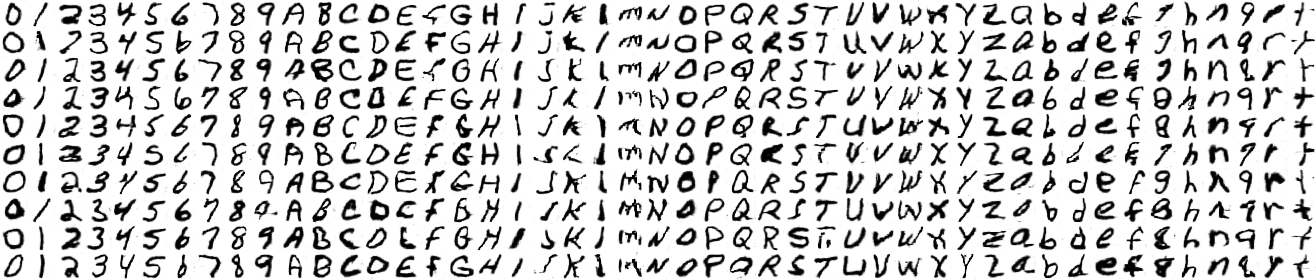 0 1 2 3 4 5 6 7 8 9 A B C D E F G H I j K l m N O P Q R S T U V W X Y Z a b d e f g h n q r t
0 1 2 3 4 5 6 7 8 9 A B C D E F G H I j k l m N O P Q R S T U V W X Y Z a b d e f g h n q r t
0 1 2 3 4 5 6 7 8 9 A B C D E F G H I J K l m N O P Q R S T U V W X Y Z a b d e f g h n q r t
0 1 2 3 4 5 6 7 8 9 A B C D E F G H I J K l m N O P Q R S T U V W X Y Z a b d e f g h n q r t
0 1 2 3 4 5 6 7 8 9 A B C D E F G H I J K l m N O P Q R S T U V W X Y Z a b d e f g h n q r t
0 1 2 3 4 5 6 7 8 9 A B C D E F G H I J K l m N O P Q R S T U V W X Y Z a b d e f g h n q r t
0 1 2 3 4 5 6 7 8 9 A B C D E F G H I J K l m N O P Q R S T U V W X Y Z a b d e f g h n q r t
0 1 2 3 4 5 6 7 8 9 A B C D E F G H I J K l m N O P Q R S T U V W X Y Z a b d e f g h n q r t
0 1 2 3 4 5 6 7 8 9 A B C D E F G H I J K l m N O P Q R S T U V W X Y Z a b d e f g h n q r t
0 1 2 3 4 5 6 7 8 9 A B C D E F G H I J K l m N O P Q R S T U V W X Y Z a b d e f g h n q r t